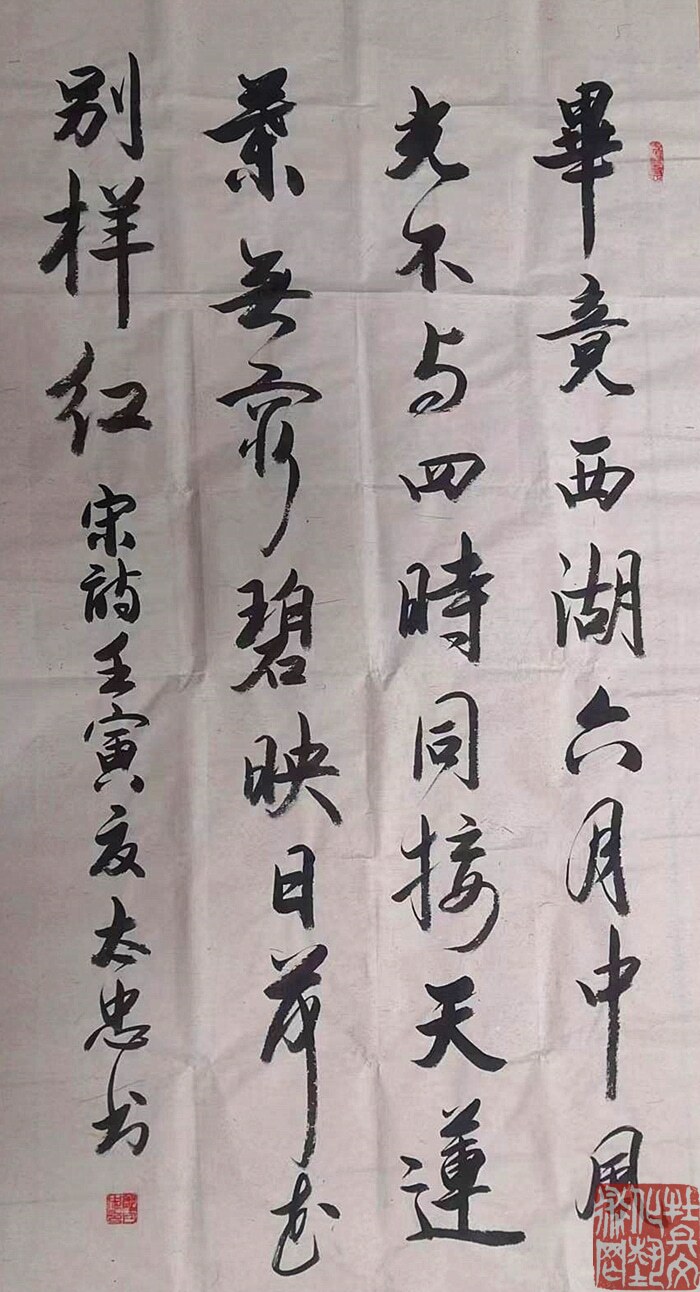 畢竟西湖六月中風
光不与四時同接天蓮
葉無窮碧映日荷花
别样红
宋詩壬寅夏太忠书